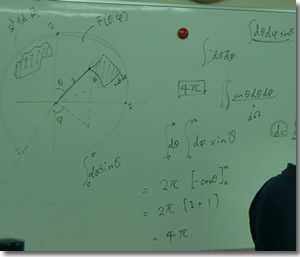 F(θ, φ)
∫dθdφ sinθ
∫dθdφ
4π
∬ sinθdθdφ
dΩ
∫₀^π dθ ∫₀^2π dφ sinθ
∫₀^π dθ sinθ
= 2π [-cosθ]₀^π
= 2π [1+1]
= 4π.